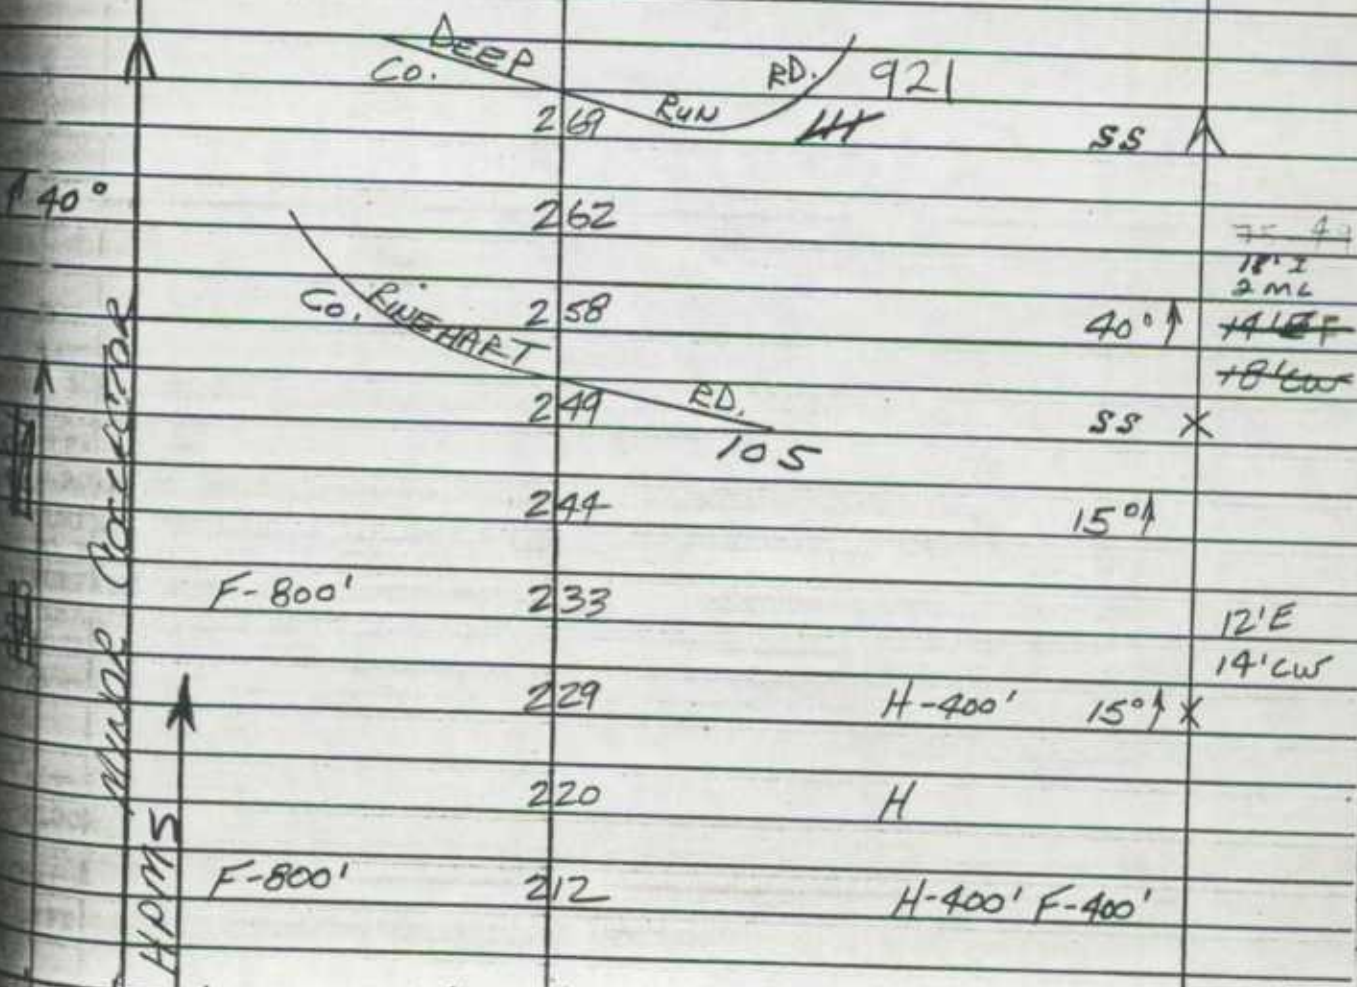 DEEP RUN RD. 921
Co.
269 SS
40°
262
18' I
2 ML
Co. RINEHART RD. 105
258 40°↑
249 SS X
244 15°↑
F-800' 233 12'E
14'CW
229 H-400' 15°↑ X
220 H
F-800' 212 H-400' F-400'
MINOR COLLECTOR
HPMS